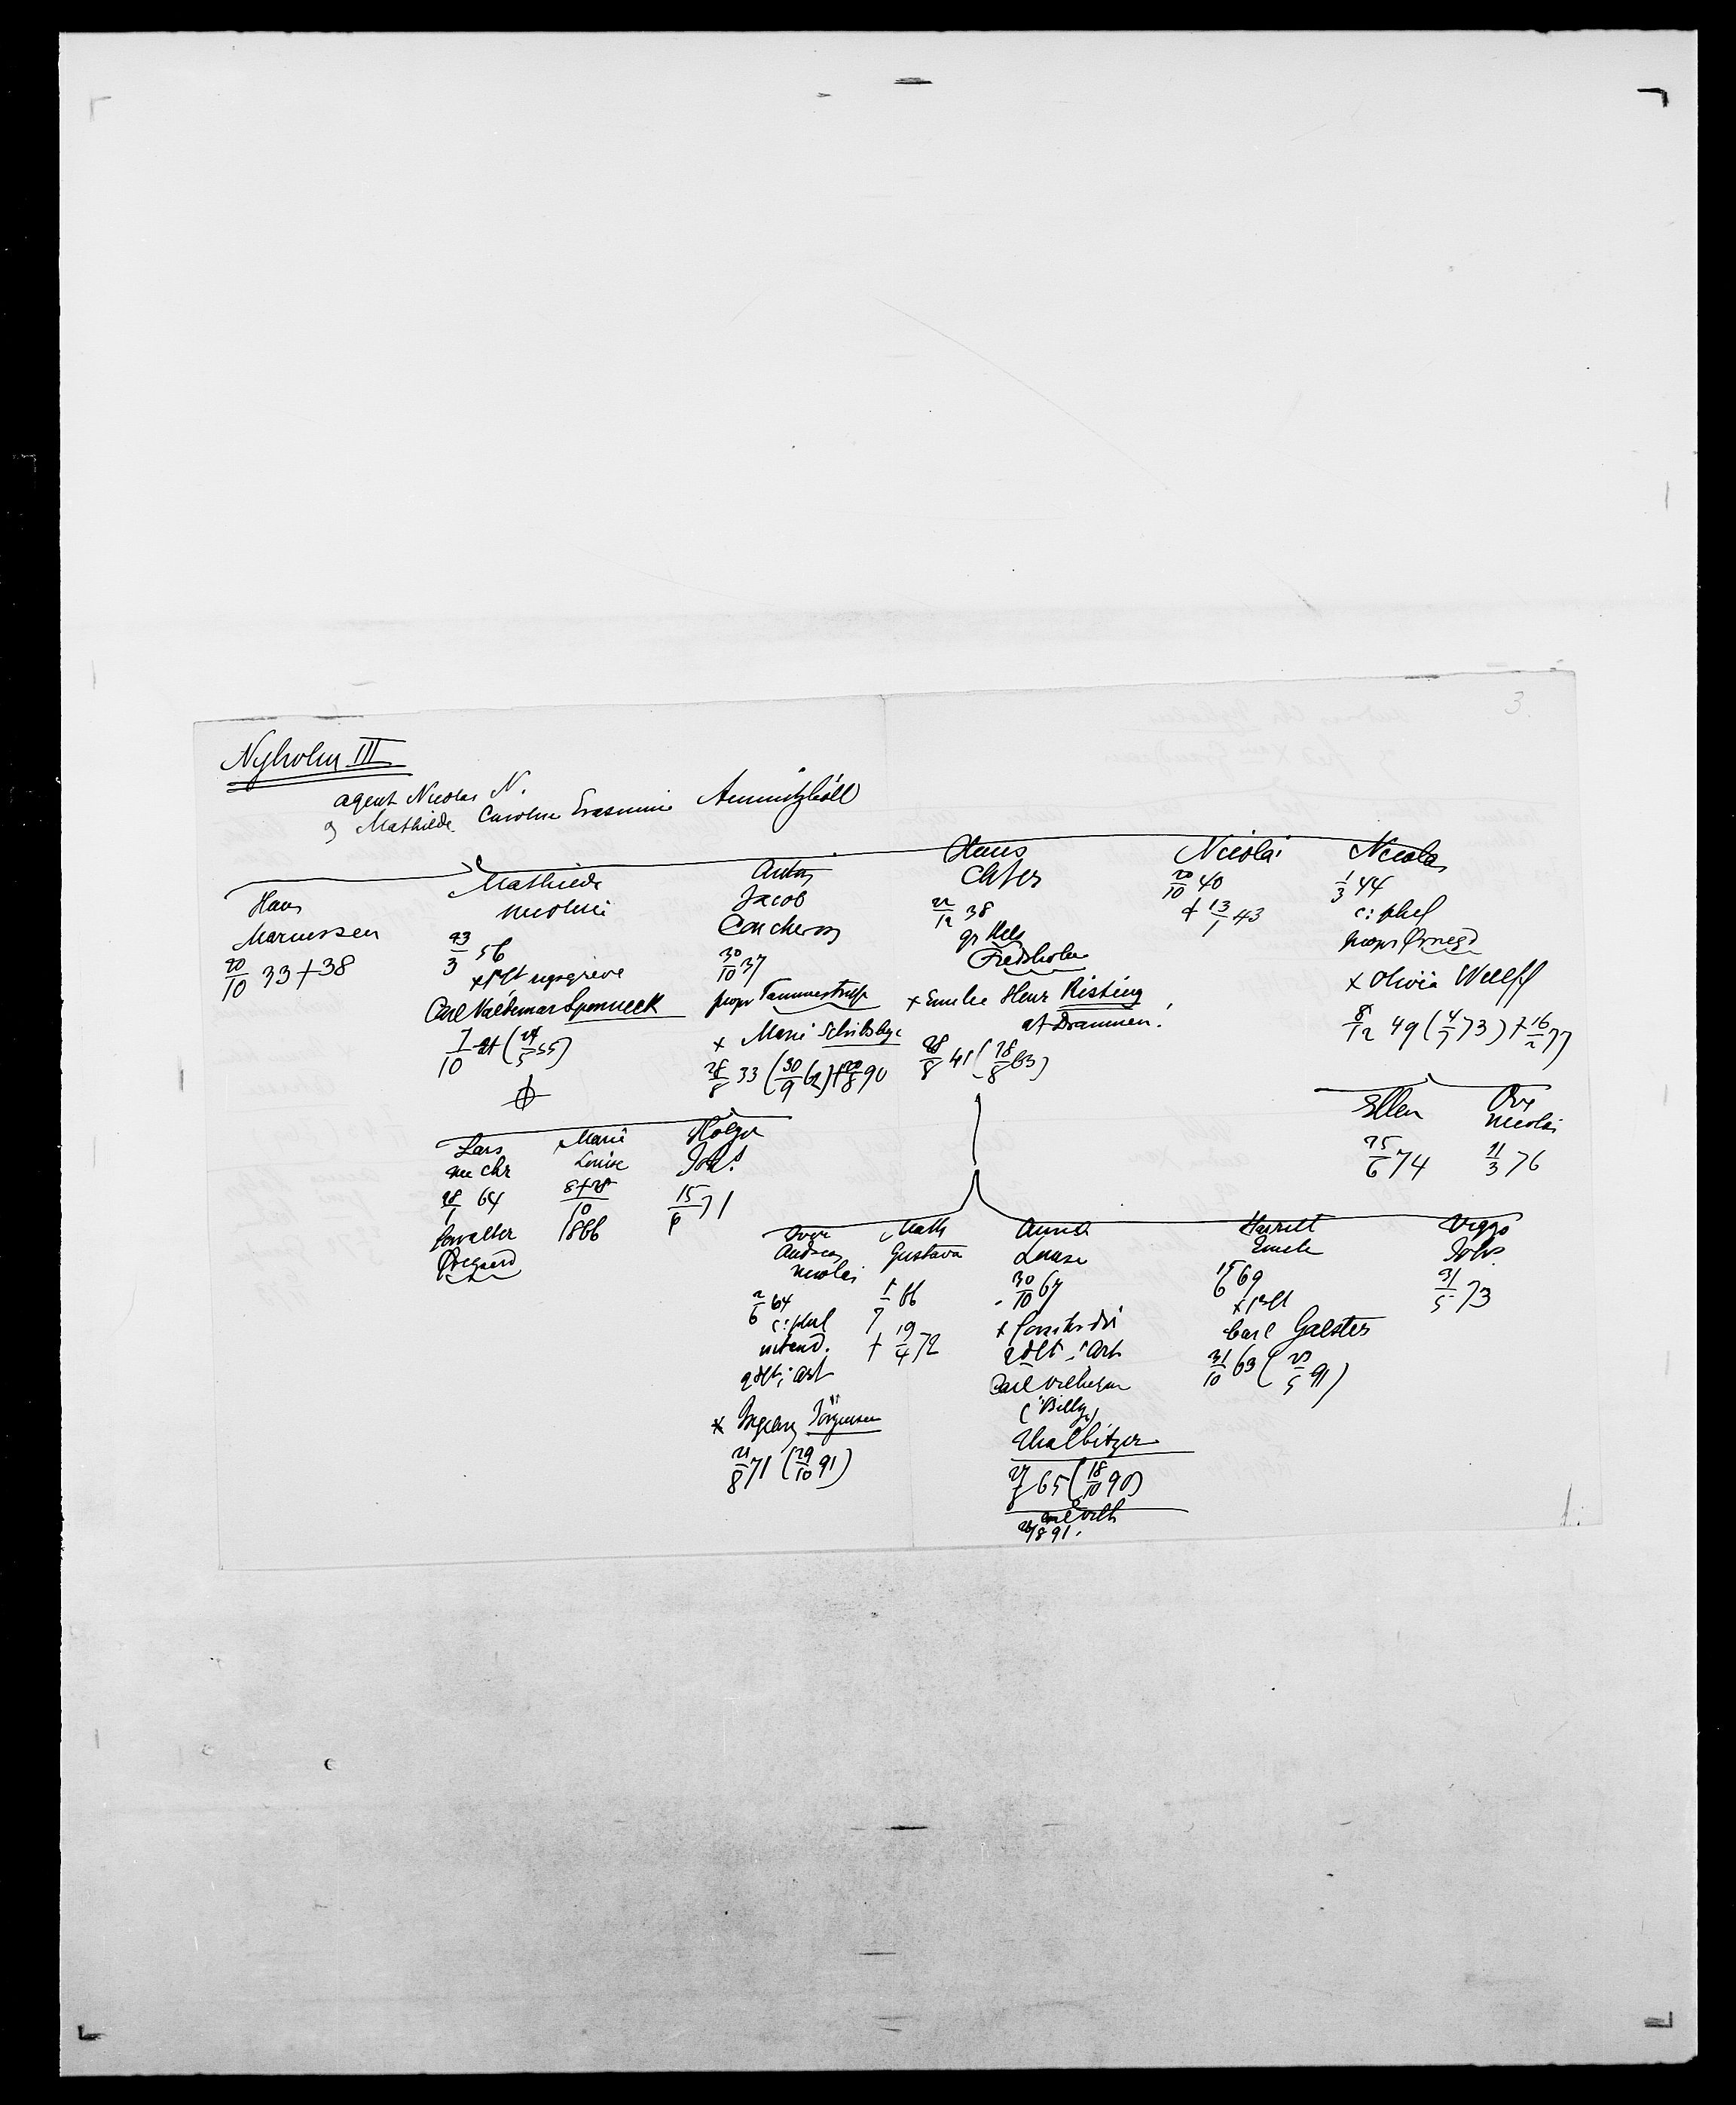 3.
Nyholm III
agent Nicolas N.
og Mathilde Caroline Erasmine Ammitzböll
Hans
Mariussen
20/10 33 + 38
Mathilde
Nicoline
23/3 56
Carl Valdemar Sponneck
7/10 (24/5 55)
Anton
Jacob
30/10 37
propr Tammestrup
x Marie Schibbye
28/8 33 (30/9 62) + 20/8 90
Hans
Chfer
22/12 38
Fredsholm
x Emilie Henr Risting
af Drammen!
28/8 41 (28/8 63)
Nicolai
20/10 40
+ 13/1 43
Nicolas
1/3 44
c: phil
x Olivia Wulff
8/12 49 (4/7 73) + 16/2 77
Lars
28/1 64
forvalter
Marie
Louise
1866
Holger
Joh.
15/6 71
Ellen
25/6 74
Ove
Nicolai
11/3 76
Andreas
Nicolai
2/6 64
c: phil
intend.
x Ingeborg Jörgensen
21/8 71 (29/10 91)
Math
Gustava
1/7 66
+ 19/4 72
Anna
Louise
30/10 67
Carl Vilhelm
(Billy)
Thalbitzer
27/8 65 (18/10 90)
Harriet
Emilie
15/6 69
x prlt
Carl Galster
31/10 63 (23/5 91)
Viggo
Johs.
31/5 73
1.